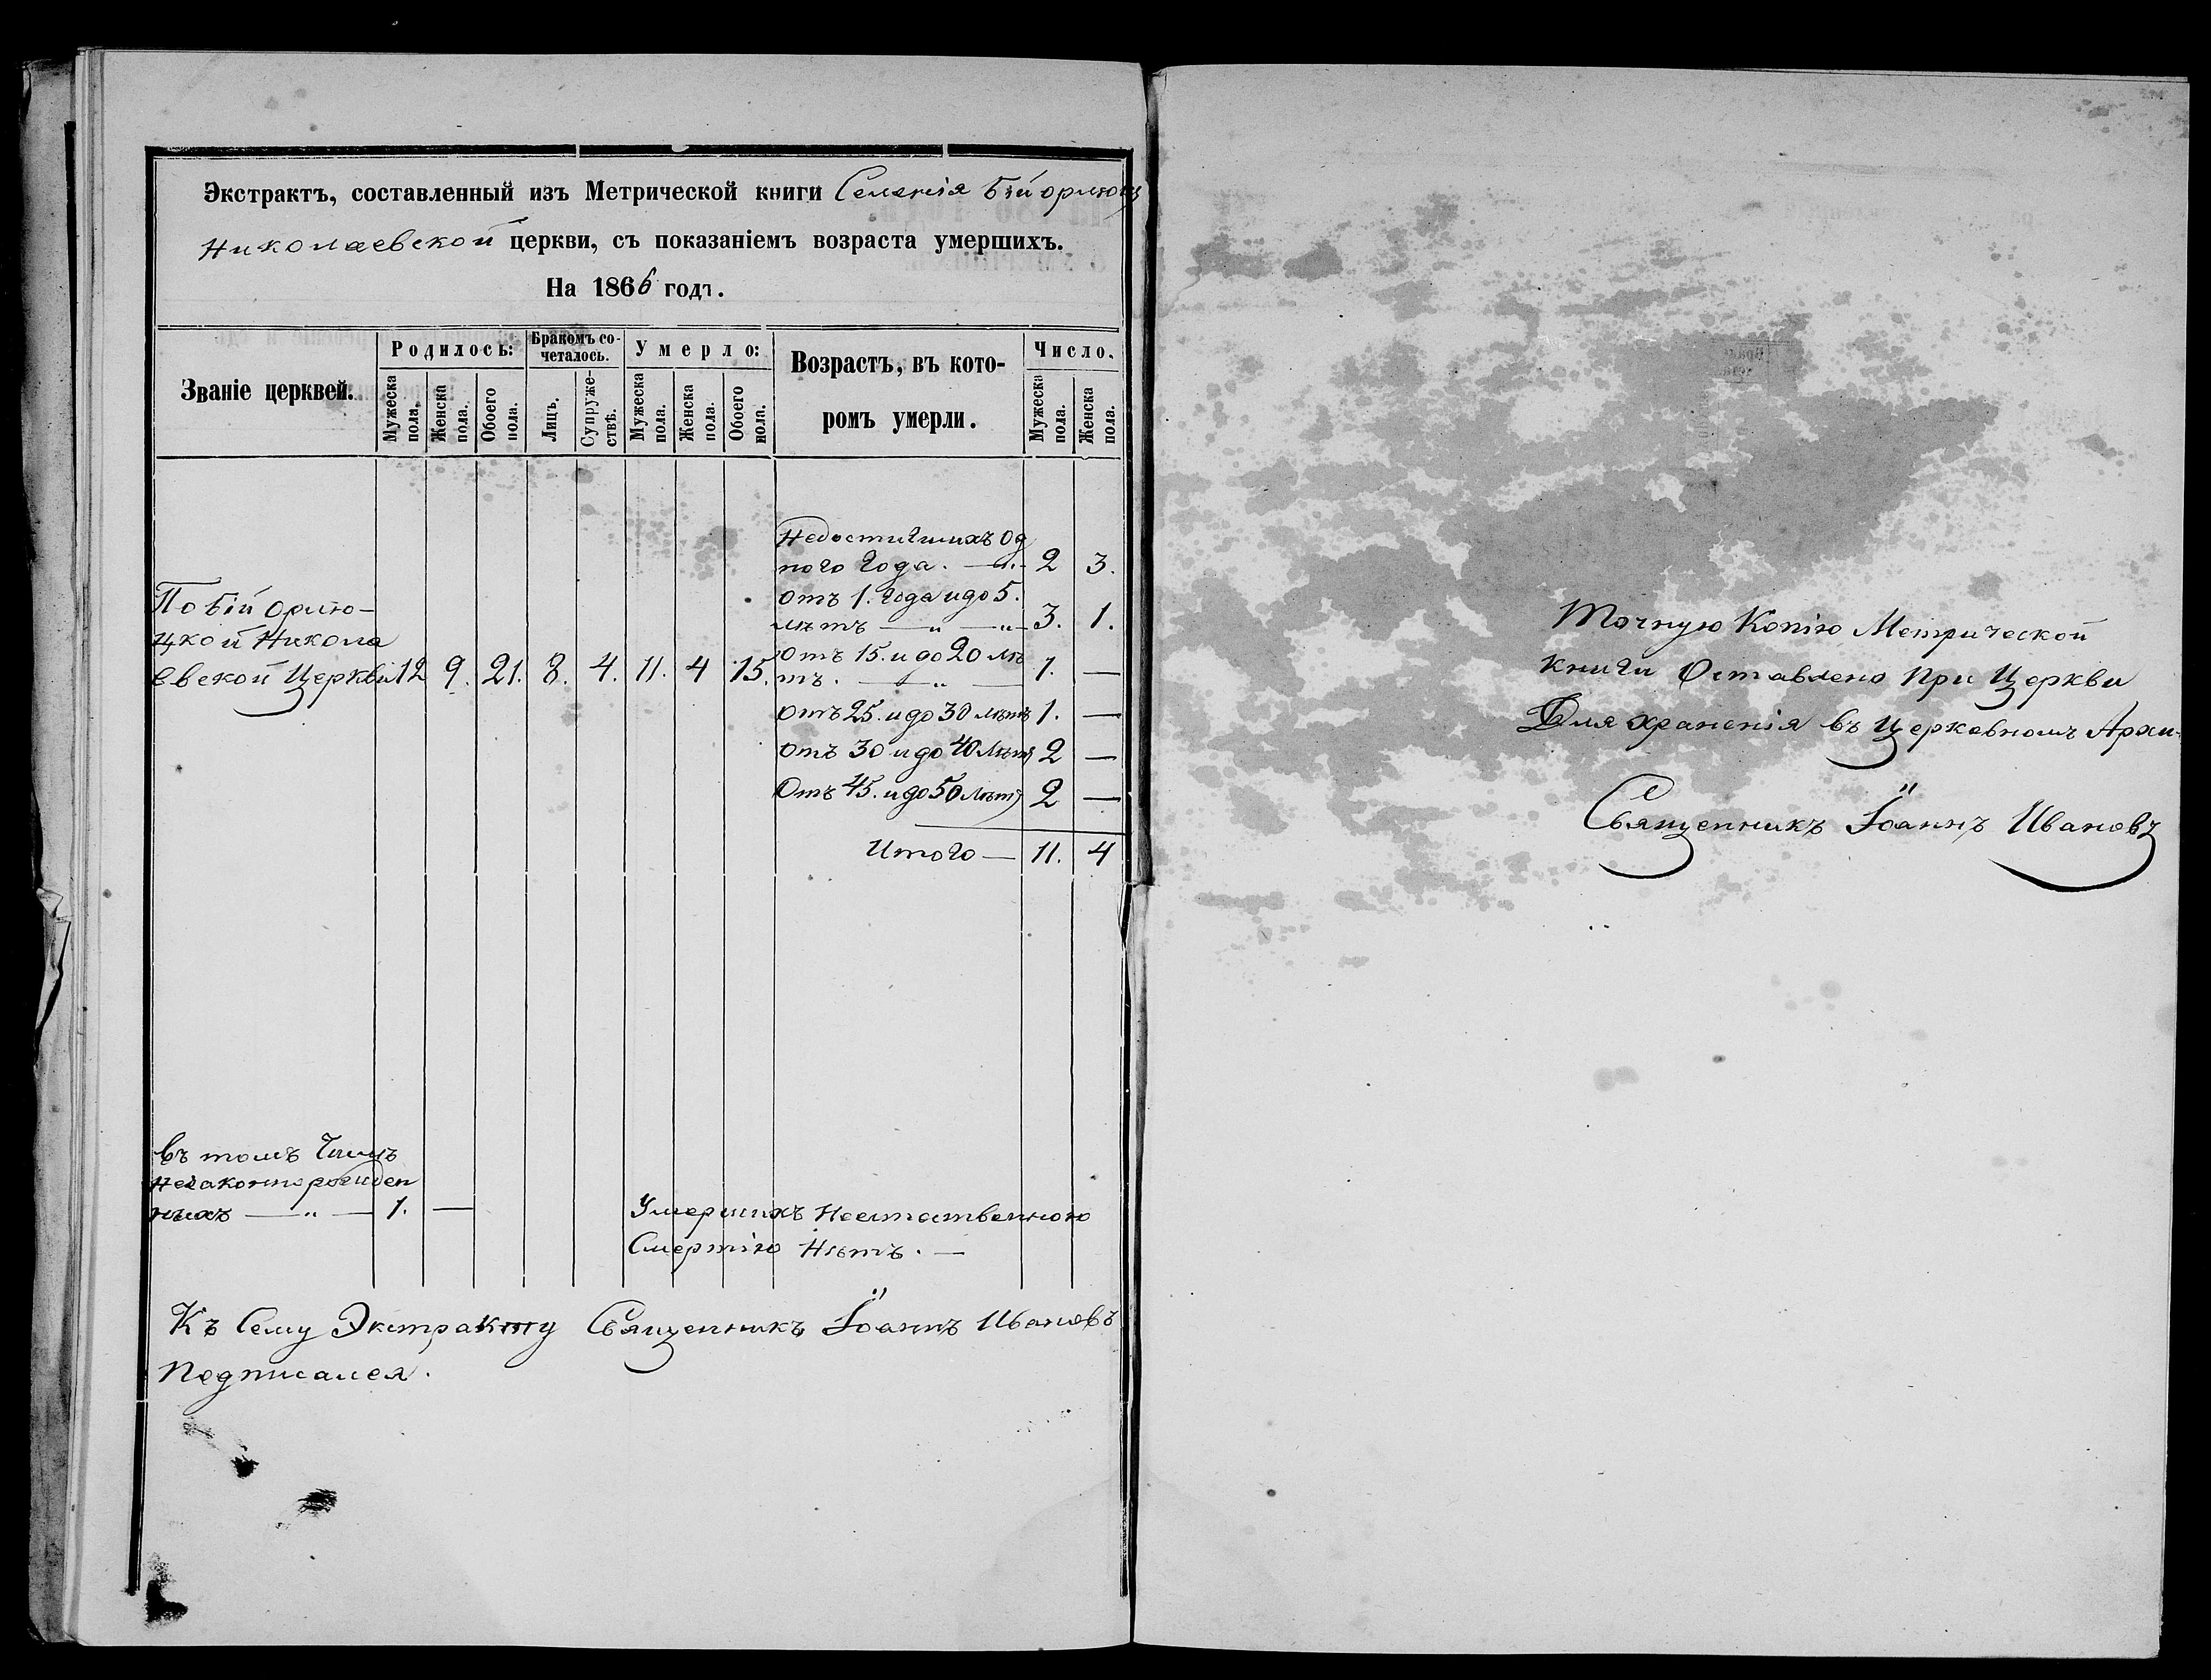 Экстрактъ, составленный изъ Метрической книги Селенія Бійорлюцъ
Николаевской церкви, съ показаніемъ возраста умершихъ.
На 1866 годъ.
Званіе церквей.
Родилось:
Бракомъ со-
четалось.
Умерло:
Возрастъ, въ кото-
ромъ умерли.
Число.
Мужеска пола.
Женска пола.
Обоего пола.
Лицъ.
Супруже-
ствъ.
Мужеска пола.
Женска пола.
Обоего пола.
Мужеска пола.
Женска пола.
Недостигшихъ Од
ного Года. — „ — 2 3.
Отъ 1. Года и до 5.
лѣтъ — „ — „ — 3. 1.
По Бій Орлю-
цкой Никола
евской Церкви 12 9. 21. 8. 4. 11. 4 15.
Отъ 15. и до 20 лѣ
тъ. — „ — 1. —
Отъ 25. и до 30 лѣтъ 1. —
Отъ 30 и до 40 Лѣтъ 2 —
Отъ 45. и до 50 лѣтъ 2 —
Итого — 11. 4
Въ томъ Числѣ
Незаконнорожден
ныхъ — „ — 1. —
Умершихъ Неестественною
Смертію Нѣтъ. —
Къ Сему Экстракту Священникъ Іоаннъ Ивановъ
Подписался.
Точную Копію Метрической
книги Оставлено При Церкви
Для храненія въ Церковномъ Архи-
Священникъ Іоаннъ Ивановъ